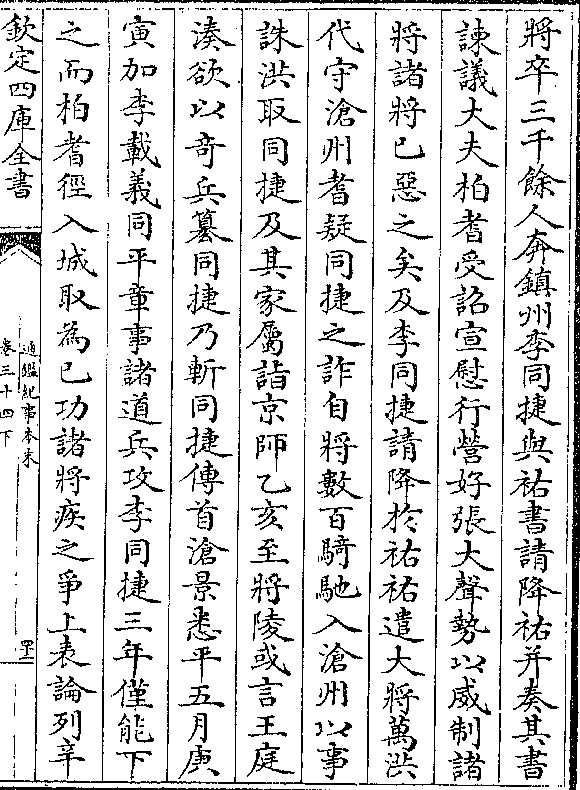 將卒三千餘人奔鎮州李同捷與祐書請降祐并奏其書
諫議大夫柏耆受詔宣慰行營好張大聲勢以威制諸
將諸將已惡之矣及李同捷請降於祐祐遣大將萬洪
代守滄州耆疑同捷之詐自將數百騎馳入滄州以事
誅洪取同捷及其家屬詣京師乙亥至將陵或言王庭
湊欲以奇兵篡同捷乃斬同捷傳首滄景悉平五月庚
寅加李載義同平章事諸道兵攻李同捷三年僅能下
之而柏耆徑入城取為已功諸將疾之爭上表論列辛
欽定四庫全書
通鑑紀事本末
卷三十四下